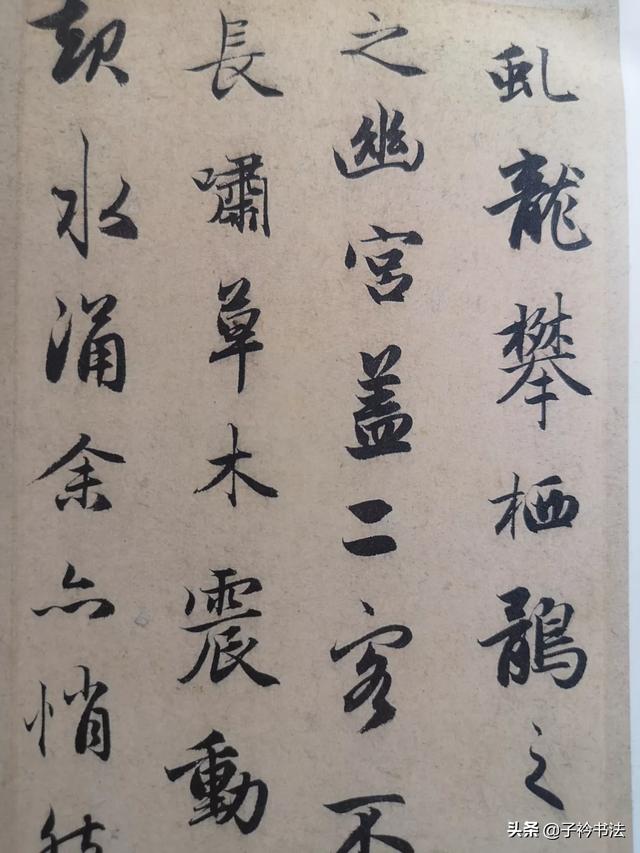 虬龍攀栖鶻之
之幽宮盖二客不
長嘯草木震動
起水涌余亦悄然
头条 @子衿书法